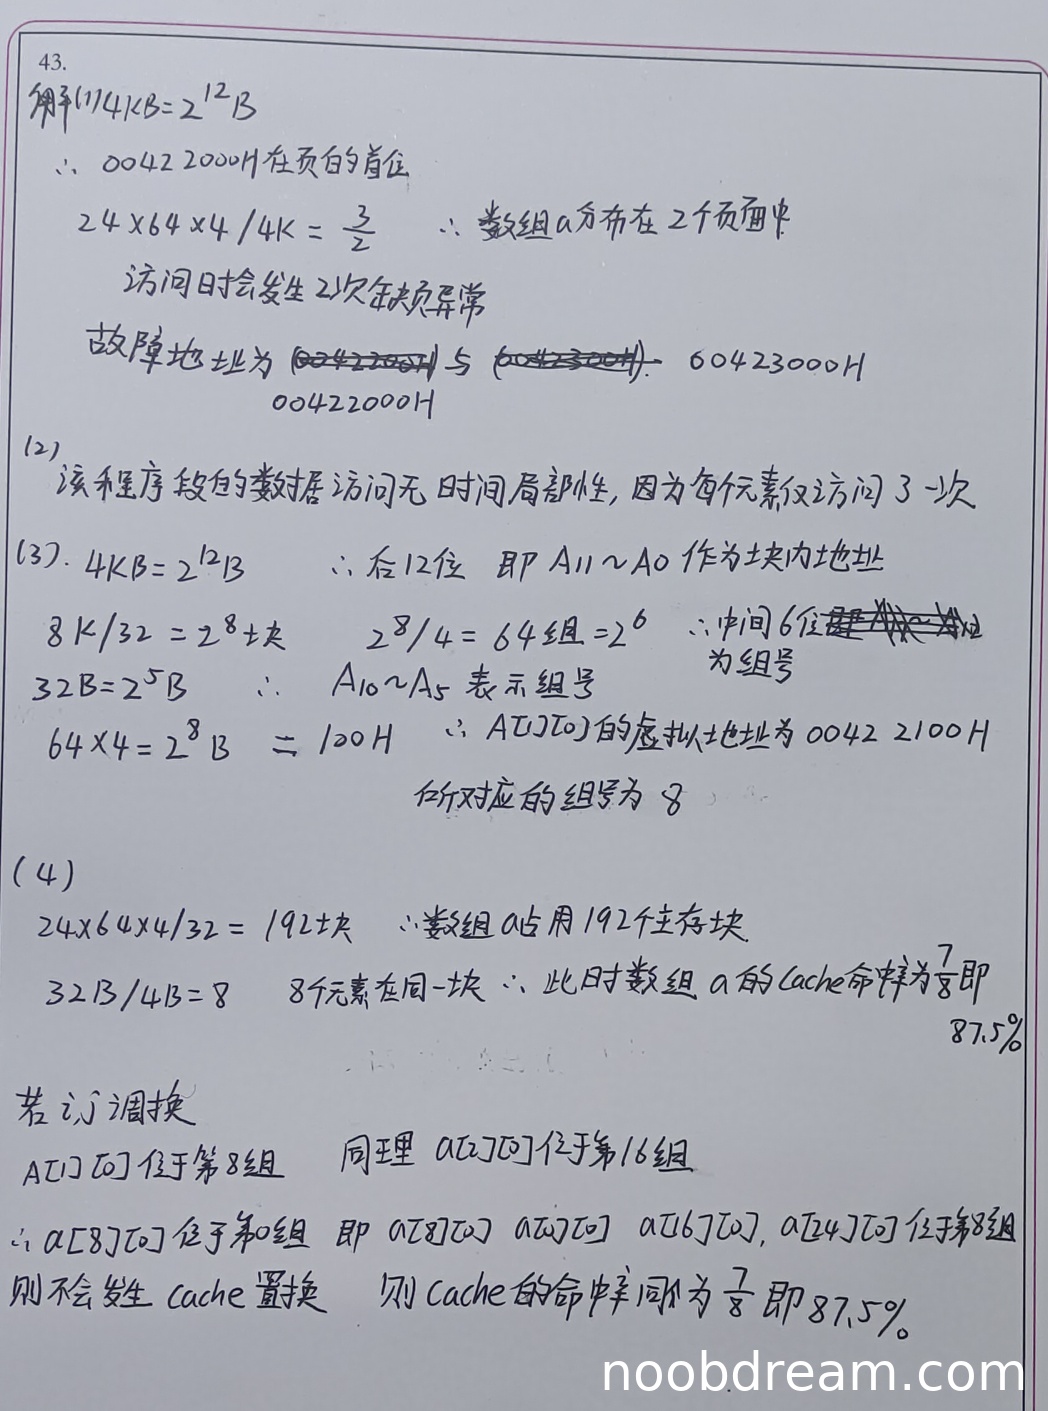 43.
解(1) 4KB=2^12B
∴ 0042 2000H在页的首位
24×64×4/4K = 3/2 ∴ 数组a分布在2个页面中
访问时会发生2次缺页异常
故障地址为 与 00423000H
00422000H
(2)
该程序段的数据访问无时间局部性,因为每个元素仅访问了一次
(3). 4KB=2^12B ∴后12位 即 A11~A0 作为块内地址
8K/32 = 2^8块 2^8/4 = 64组 = 2^6 ∴中间6位
为组号
32B=2^5B ∴ A10~A5 表示组号
64×4=2^8B = 100H ∴ A[1][0]的虚拟地址为0042 2100H
所对应的组号为8
(4)
24×64×4/32 = 192块 ∴数组a占用192个主存块
32B/4B=8 8个元素在同一块 ∴ 此时数组a的Cache命中率为7/8即
87.5%
若i,j调换
A[1][0]位于第8组 同理 a[2][0]位于第16组
∴ a[8][0]位于第0组 即 a[8][0] a[0][0] a[16][0], a[24][0]位于第8组
则不会发生cache置换 则Cache的命中率同为7/8即87.5%
noobdream.com